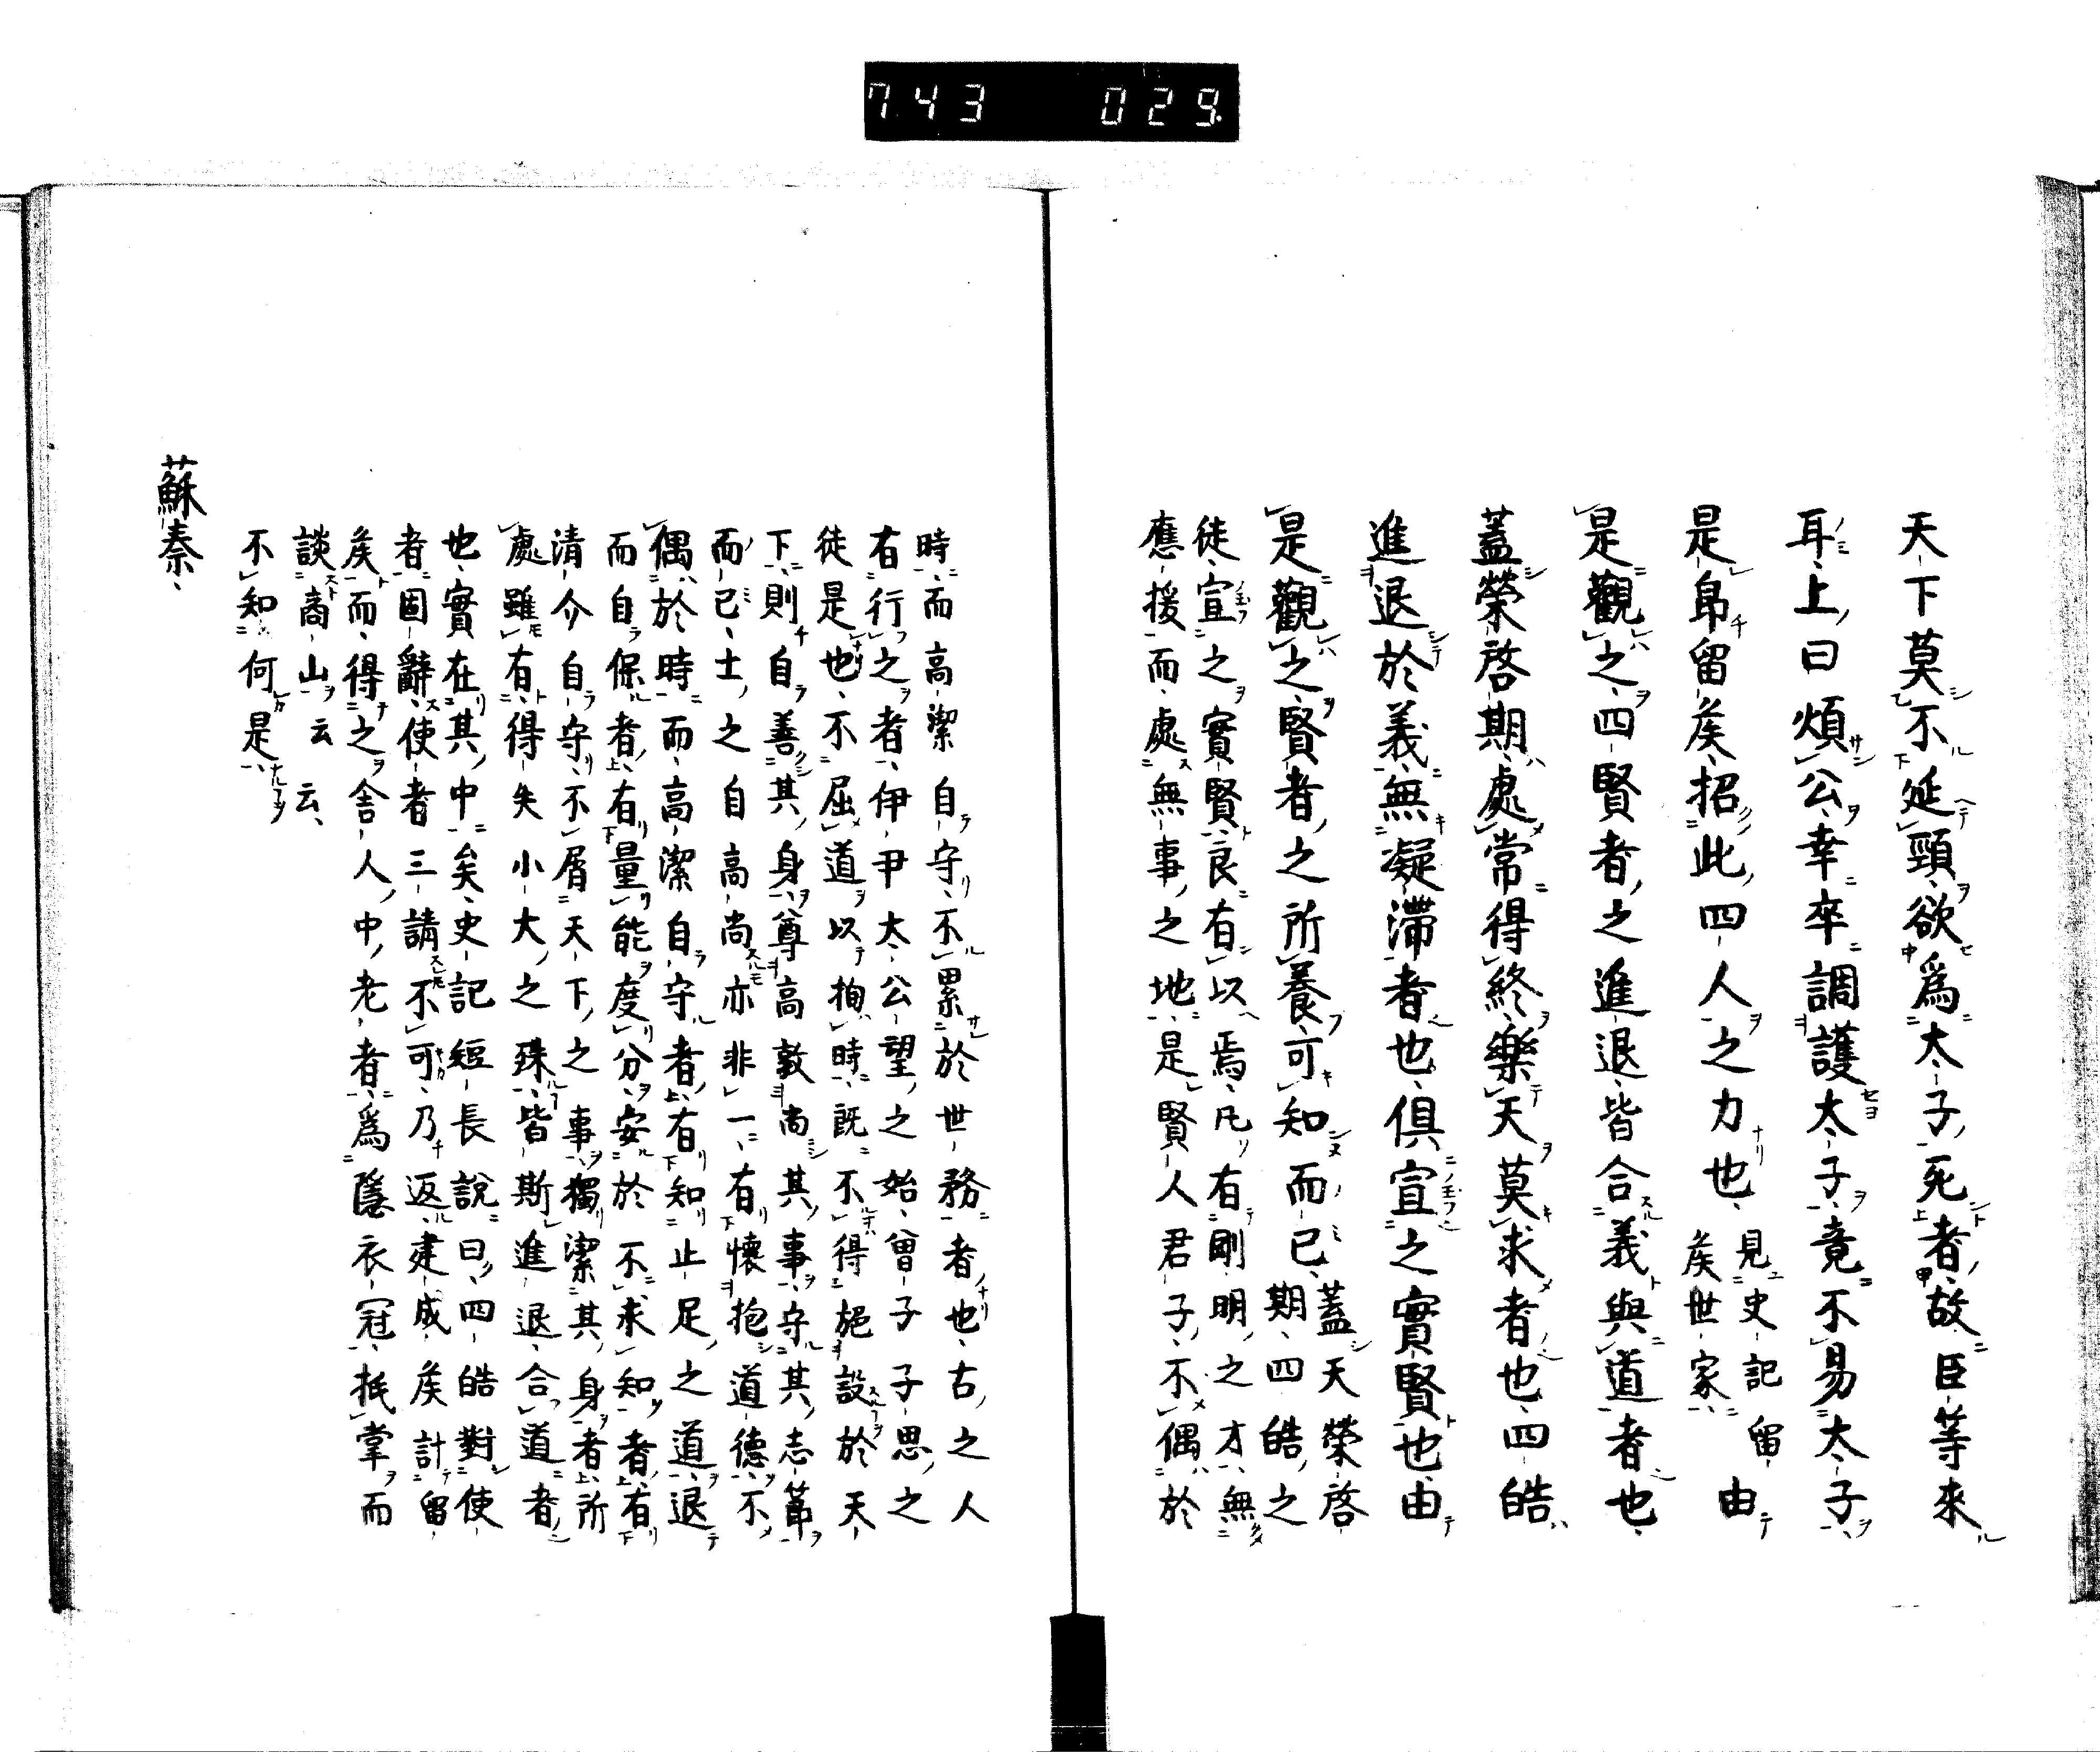 743 029
天下莫不延頸欲爲太子死者故臣等來
耳上曰煩公幸卒調護太子竟不易太子
是帛留矦招此四人之力也見史記留矦世家由
是觀之四賢者之進退皆合義與道者也
蓋榮啓期處常得終樂天莫求者也四皓
進退於義無凝滯者也俱宣之實賢也由
是觀之賢者之所養可知而已蓋天榮啓期四皓之
徒宣之實賢良有以焉凡有剛明之才無
應援而處無事之地是賢人君子不偶於
時而高潔自守不累於世務者也古之人
有行之者伊尹太公望之始曾子子思之
徒是也不屈道以拘時既不得施設於天
下則自善其身尊高敦尚其事守其志節
而已士之自高尚亦非一有懷抱道德不
偶於時而高潔自守者有知止足之道退
而自保者有量能度分安於不求知者有
清介自守不屑天下之事獨潔其身者所
處雖有得失小大之殊皆斯進退合道者
也實在其中矣史記短長說曰四皓對使
者固辭使者三請不可乃返建成矦計留
矦而得之舍人中老者爲隱衣冠抵掌而
談商山云云
不知何是
蘇秦